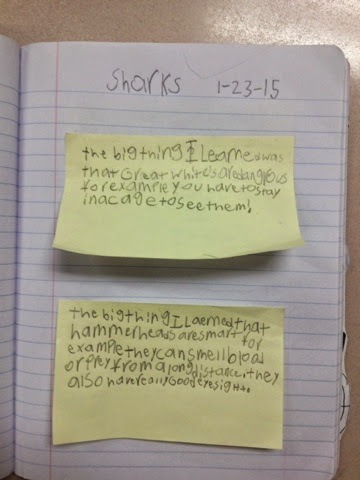 Sharks 1-23-15
the big thing I Learned was
that Great Whites are dangrous
for example you have to stay
in a cage to see them!
the big thing I Laerned that
hammerheads are smart for
example they can smell blood
or prey from a long distance. they
also have really Good eyesight.